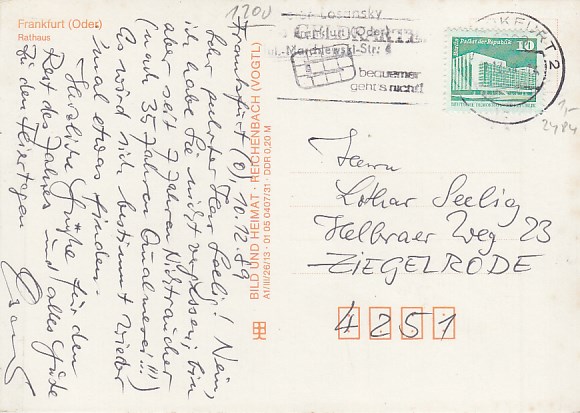 Frankfurt (Oder)
Rathaus
1200
Losansky
Frankfurt (Oder)
-Marchlewski-Str. 4
bequemer
geht's nicht!
FRANKFURT 2
Palast der Republik 10
DEUTSCHE DEMOKRATISCHE REPUBLIK
1,-
2484
Frankfurt (O), 10.12.89
Sehr geehrter Herr Seelig! Nein,
ich habe Sie nicht vergessen, bin
aber seit 7 Jahren Nichtraucher
(nach 35 Jahren Qualmerei!!!)
Es wird sich bestimmt wieder
mal etwas finden.
Herzliche Grüße für den
Rest des Jahres und alles Gute
zu den Feiertagen
BILD UND HEIMAT · REICHENBACH (VOGTL)
A1/III/26/13 · 01 05 0407/31 · DDR 0,20 M
Herrn
Lothar Seelig
Helbraer Weg 23
ZIEGELRODE
4251